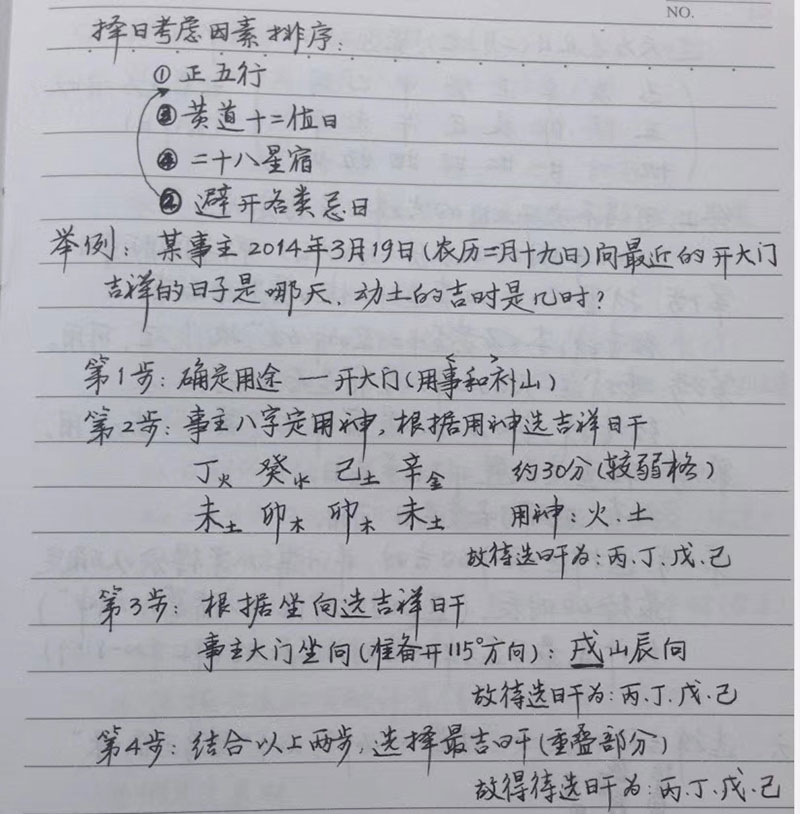 NO.
择日考虑因素排序:
① 正五行
③ 黄道十二值日
④ 二十八星宿
② 避开各类忌日
举例: 某事主2014年3月19日(农历二月十九日)问最近的开大门
吉祥的日子是哪天,动土的吉时是几时?
第1步: 确定用途 — 开大门(用事和补山)
第2步: 事主八字定用神,根据用神选吉祥日干
丁火 癸水 己土 辛金 约30分(较弱格)
未土 卯木 卯木 未土 用神: 火.土
故待选日干为: 丙.丁.戊.己
第3步: 根据坐向选吉祥日干
事主大门坐向(准备开115°方向): 戌山辰向
故待选日干为: 丙.丁.戊.己
第4步: 结合以上两步,选择最吉日干(重叠部分)
故得待选日干为: 丙.丁.戊.己